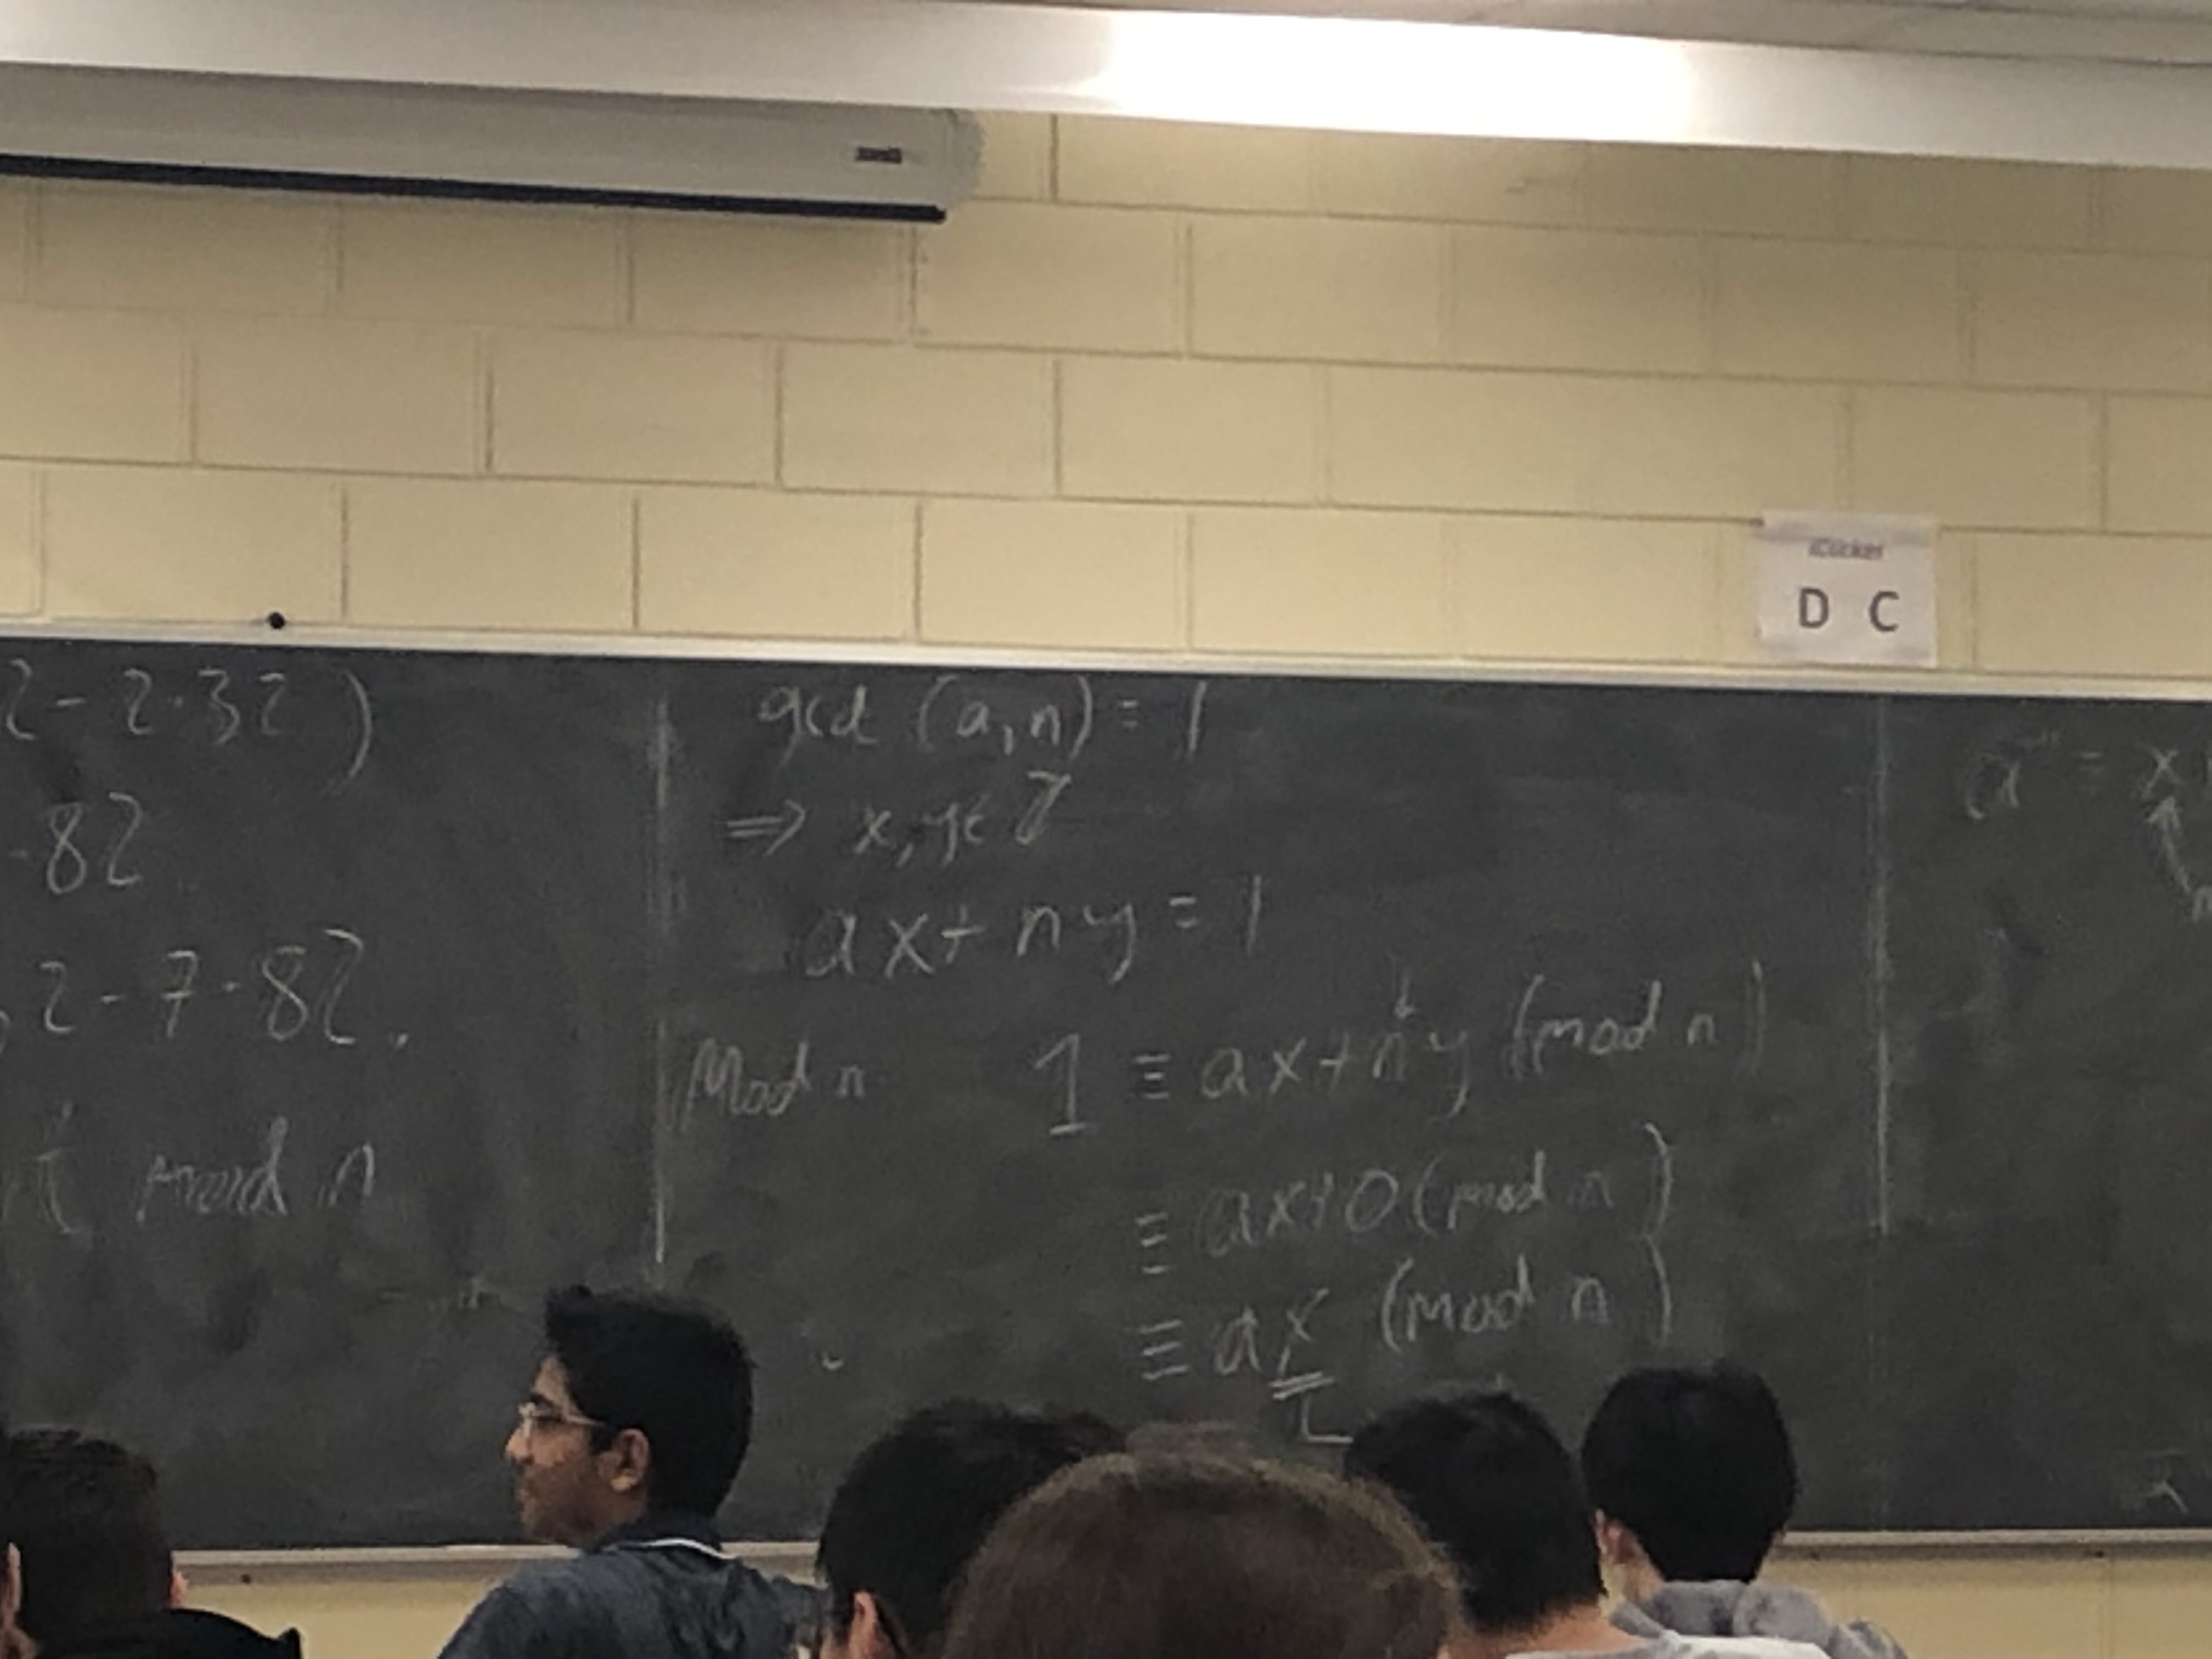 iClicker
D C
2 - 2·32 )
·82
2 - 7·82.
mod n
gcd (a,n) = 1
⇒ x, y ∈ ℤ
ax + ny = 1
Mod n 1 ≡ ax + ny (mod n)
≡ ax + 0 (mod n)
≡ ax (mod n)
= x